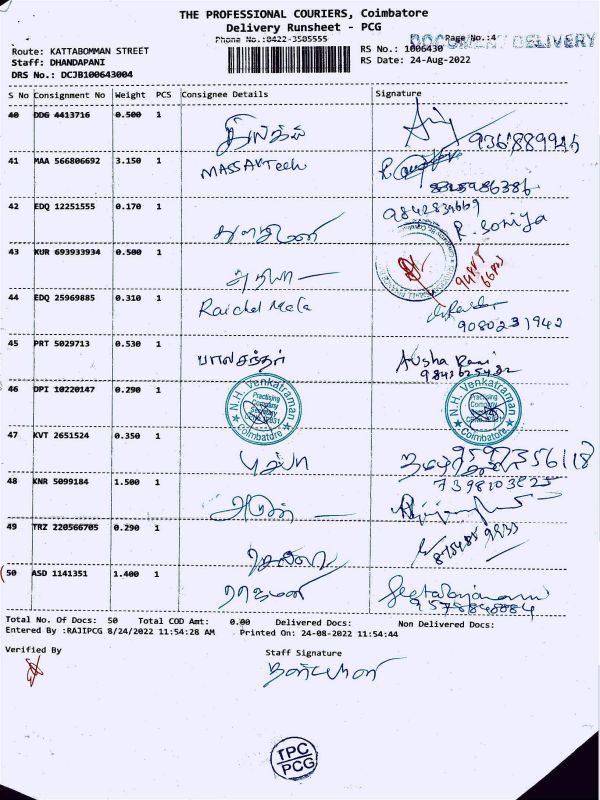 THE PROFESSIONAL COURIERS, Coimbatore
Delivery Runsheet - PCG
Phone No.:0422-3505555
Page No.:4
DOCUMENT DELIVERY
Route: KATTABOMMAN STREET
RS No.: 1006430
Staff: DHANDAPANI
RS Date: 24-Aug-2022
DRS No.: DCJB100643004
S No Consignment No Weight PCS Consignee Details Signature
40 DDG 4413716 0.500 1
41 MAA 566806692 3.150 1 MASSAVTech
8825986386
42 EDQ 12251555 0.170 1 துளசிமணி 9842839669 R. Soniya
43 KUR 693933934 0.500 1
44 EDQ 25969885 0.310 1 Raichel Mela
9080231942
45 PRT 5029713 0.530 1 பாலசந்தர் Ausha Rani
9843625482
46 DPI 10220147 0.290 1 N.H. Venkatraman Practising Company Secretary Coimbatore N.H. Venkatraman Practising Company Secretary Coimbatore
47 KVT 2651524 0.350 1 புஷ்பா 9597356118
48 KNR 5099184 1.500 1 அருண்
49 TRZ 220566705 0.290 1
50 ASD 1141351 1.400 1
9578840884
Total No. of Docs: 50 Total COD Amt: 0.00 Delivered Docs: Non Delivered Docs:
Entered By :RAJIPCG 8/24/2022 11:54:28 AM Printed On: 24-08-2022 11:54:44
Verified By
Staff Signature
TPC
PCG